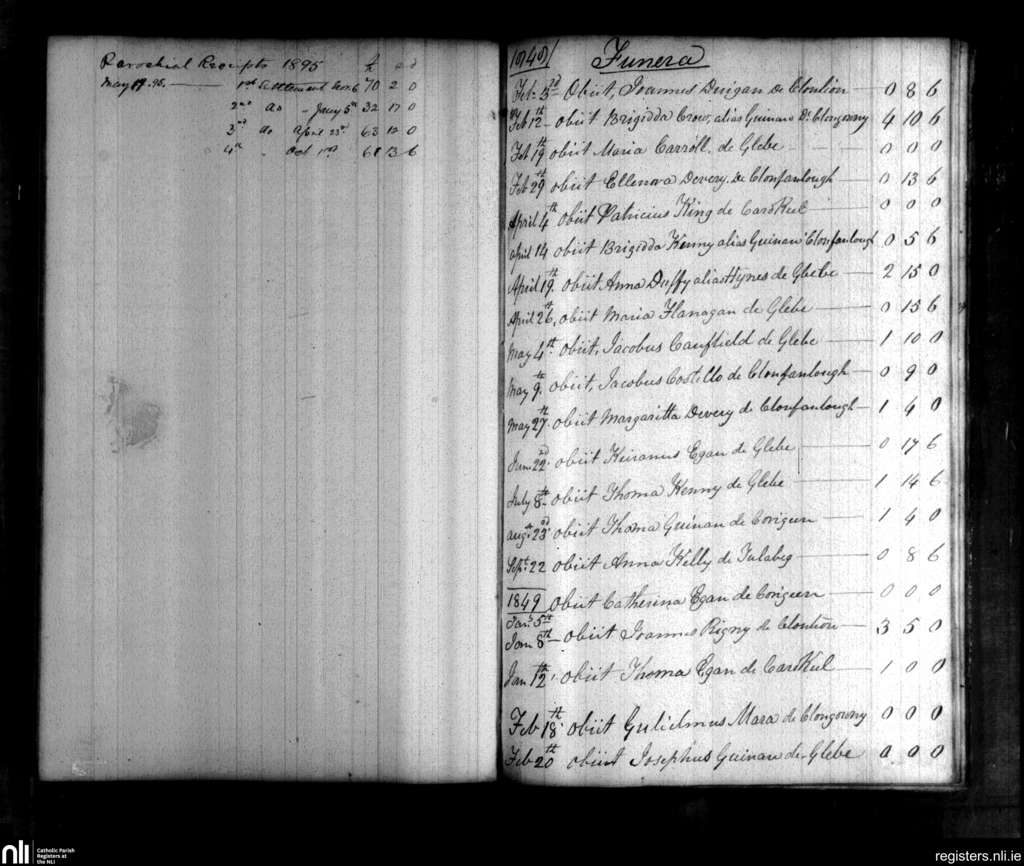 Parochial Receipts 1895 £ s d
May 19. 95. 1st Settlement 70 2 0
2nd do Jany 5th 32 17 0
3rd do April 23rd 63 12 0
4th " Oct 1st 61 13 6
1848 Funera
Feb. 3rd Obiit, Joannes Duigan de Clontion 0 8 6
Feb 12 obiit Brigidda Crow, alias Guinan De Clongowny 4 10 6
Feb 19th obiit Maria Carroll. de Glebe 0 0 0
Feb 29th obiit Ellenora Devery. De Clonfanlough 0 13 6
April 4th obiit Patricius King de CarrKeel 0 0 0
April 14 obiit Brigidda Kenny alias Guinan Clonfanlough 0 5 6
April 19th obiit Anna Duffy alias Hynes de Glebe 2 15 0
April 26th, obiit Maria Flanagan de Glebe 0 15 6
May 4th obiit, Jacobus Caufield de Glebe 1 10 0
May 9th. obiit, Jacobus Costello de Clonfanlough 0 9 0
May 27th obiit Margaritta Devery de Clonfanlough 1 4 0
June 22nd obiit Keiranus Egan de Glebe 0 17 6
July 8th obiit Thoma Kenny de Glebe 1 14 6
augst 23rd obiit Thoma Guinan de Corigeen 1 4 0
Sept 22 obiit Anna Kelly de Tulabeg 0 8 6
1849 obiit Catherina Egan de Corigeen 0 0 0
Jan. 5th
Jan 8th obiit Joannes Rigny de Clontion 3 5 0
Jan 12th obiit Thoma Egan de CarrKeel 1 0 0
Feb 18th obiit Gulielmus Mara de Clongowny 0 0 0
Feb 20th obiit Josephus Guinan de Glebe 0 0 0
nli Catholic Parish
Registers at
the NLI
registers.nli.ie